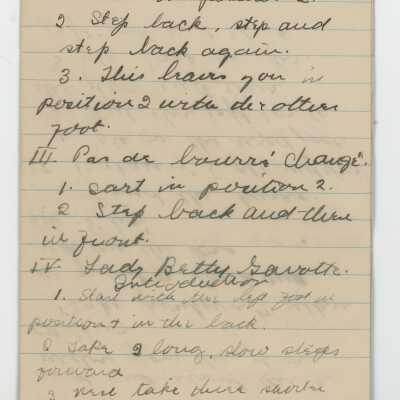 2 Step back, step and
step back again.
3. This leaves you in
position 2 with the other
foot.
III. Pas de bourré changé.
1. Start in position 2.
2 Step back and then
in front.
IV. Lady Betty Gavotte.
Introduction
1. Start with the left foot in
position 4 in the back.
2 Take 2 long, slow steps
forward
3 take three shorter